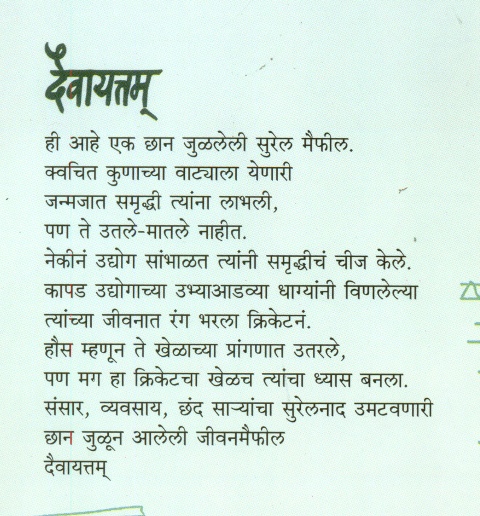 दैवायत्तम्
ही आहे एक छान जुळलेली सुरेल मैफील.
क्वचित कुणाच्या वाट्याला येणारी
जन्मजात समृद्धी त्यांना लाभली,
पण ते उतले-मातले नाहीत.
नेकीनं उद्योग सांभाळत त्यांनी समृद्धीचं चीज केले.
कापड उद्योगाच्या उभ्याआडव्या धाग्यांनी विणलेल्या
त्यांच्या जीवनात रंग भरला क्रिकेटनं.
हौस म्हणून ते खेळाच्या प्रांगणात उतरले,
पण मग हा क्रिकेटचा खेळच त्यांचा ध्यास बनला.
संसार, व्यवसाय, छंद साऱ्यांचा सुरेलनाद उमटवणारी
छान जुळून आलेली जीवनमैफील
दैवायत्तम्